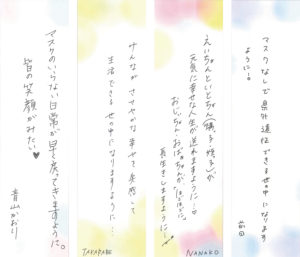 マスクなしで県外遠征できる世の中になります
ように…
前田
えいちゃんといとちゃん
が
元気に幸せな人生が送れますように…
おじいちゃん、おばあちゃんが「ほどほどに」
長生きしますように…
NANAKO
みんなが ささやかな幸せを実感して
生活できる 世の中になりますように…
TAKARABE
マスクのいらない日常が早く戻ってきますように。
皆の笑顔がみたい♥
青山かおり